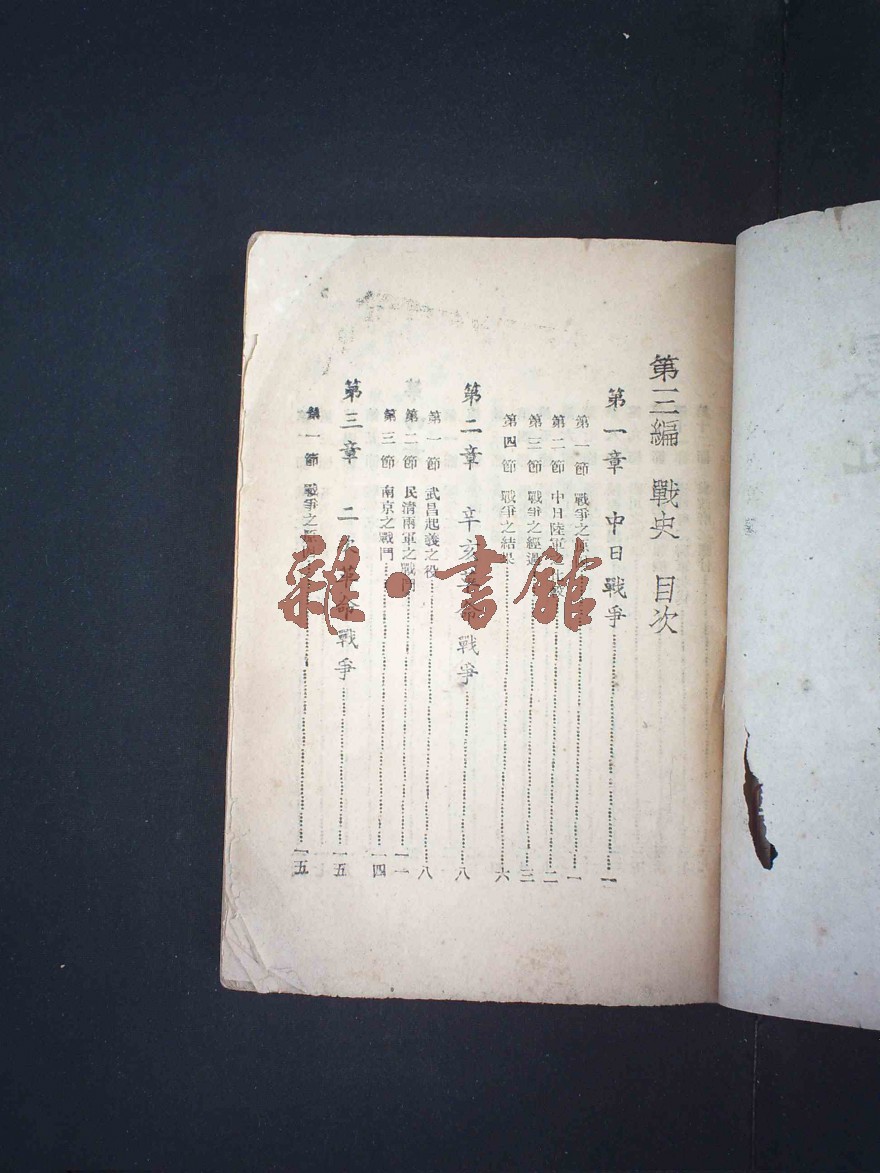 第三編 戰史 目次
第一章 中日戰爭……一
第一節 戰爭之……一
第二節 中日陸軍……二
第三節 戰爭之經過……三
第四節 戰爭之結果……六
第二章 辛亥革命戰爭……八
第一節 武昌起義之役……八
第二節 民清兩軍之戰鬥……一一
第三節 南京之戰鬥……一四
第三章 二次革命戰爭……一五
第一節 戰爭之……一五
雜·書館